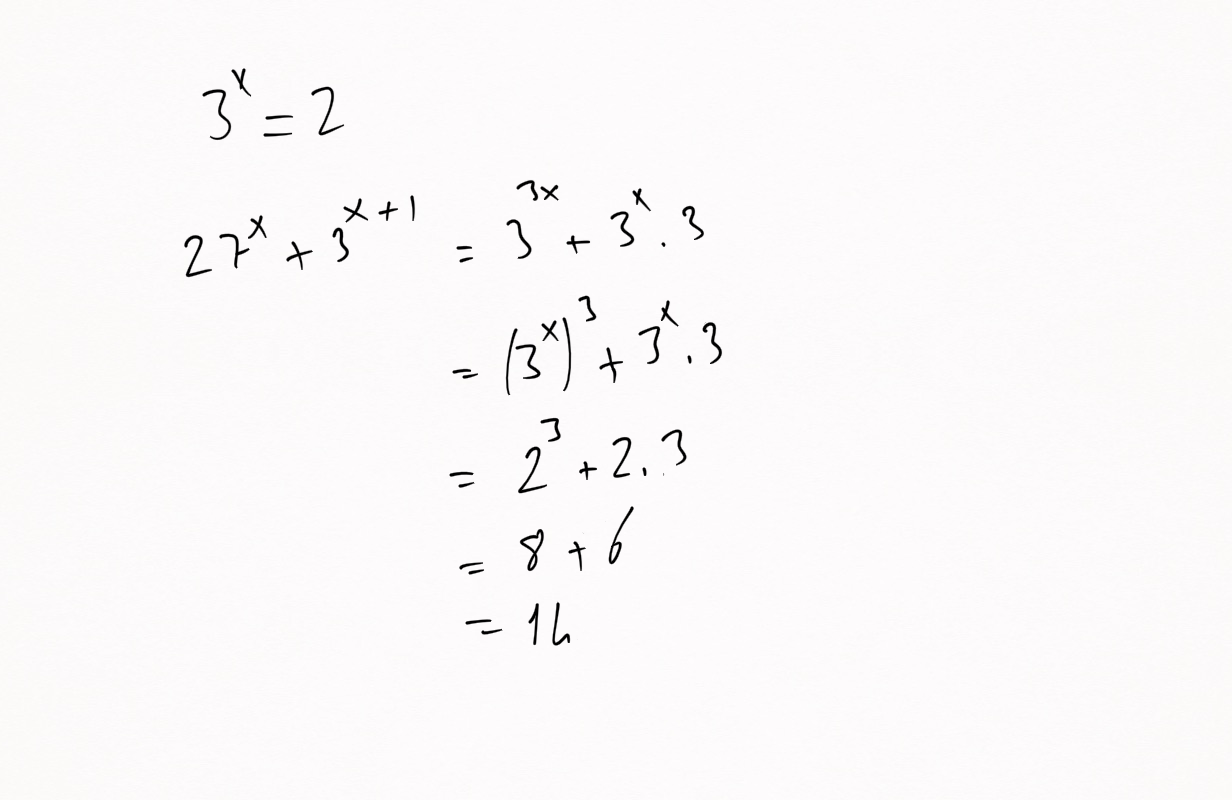 3^x = 2
27^x + 3^{x+1} = 3^{3x} + 3^x . 3
= (3^x)^3 + 3^x . 3
= 2^3 + 2 . 3
= 8 + 6
= 14